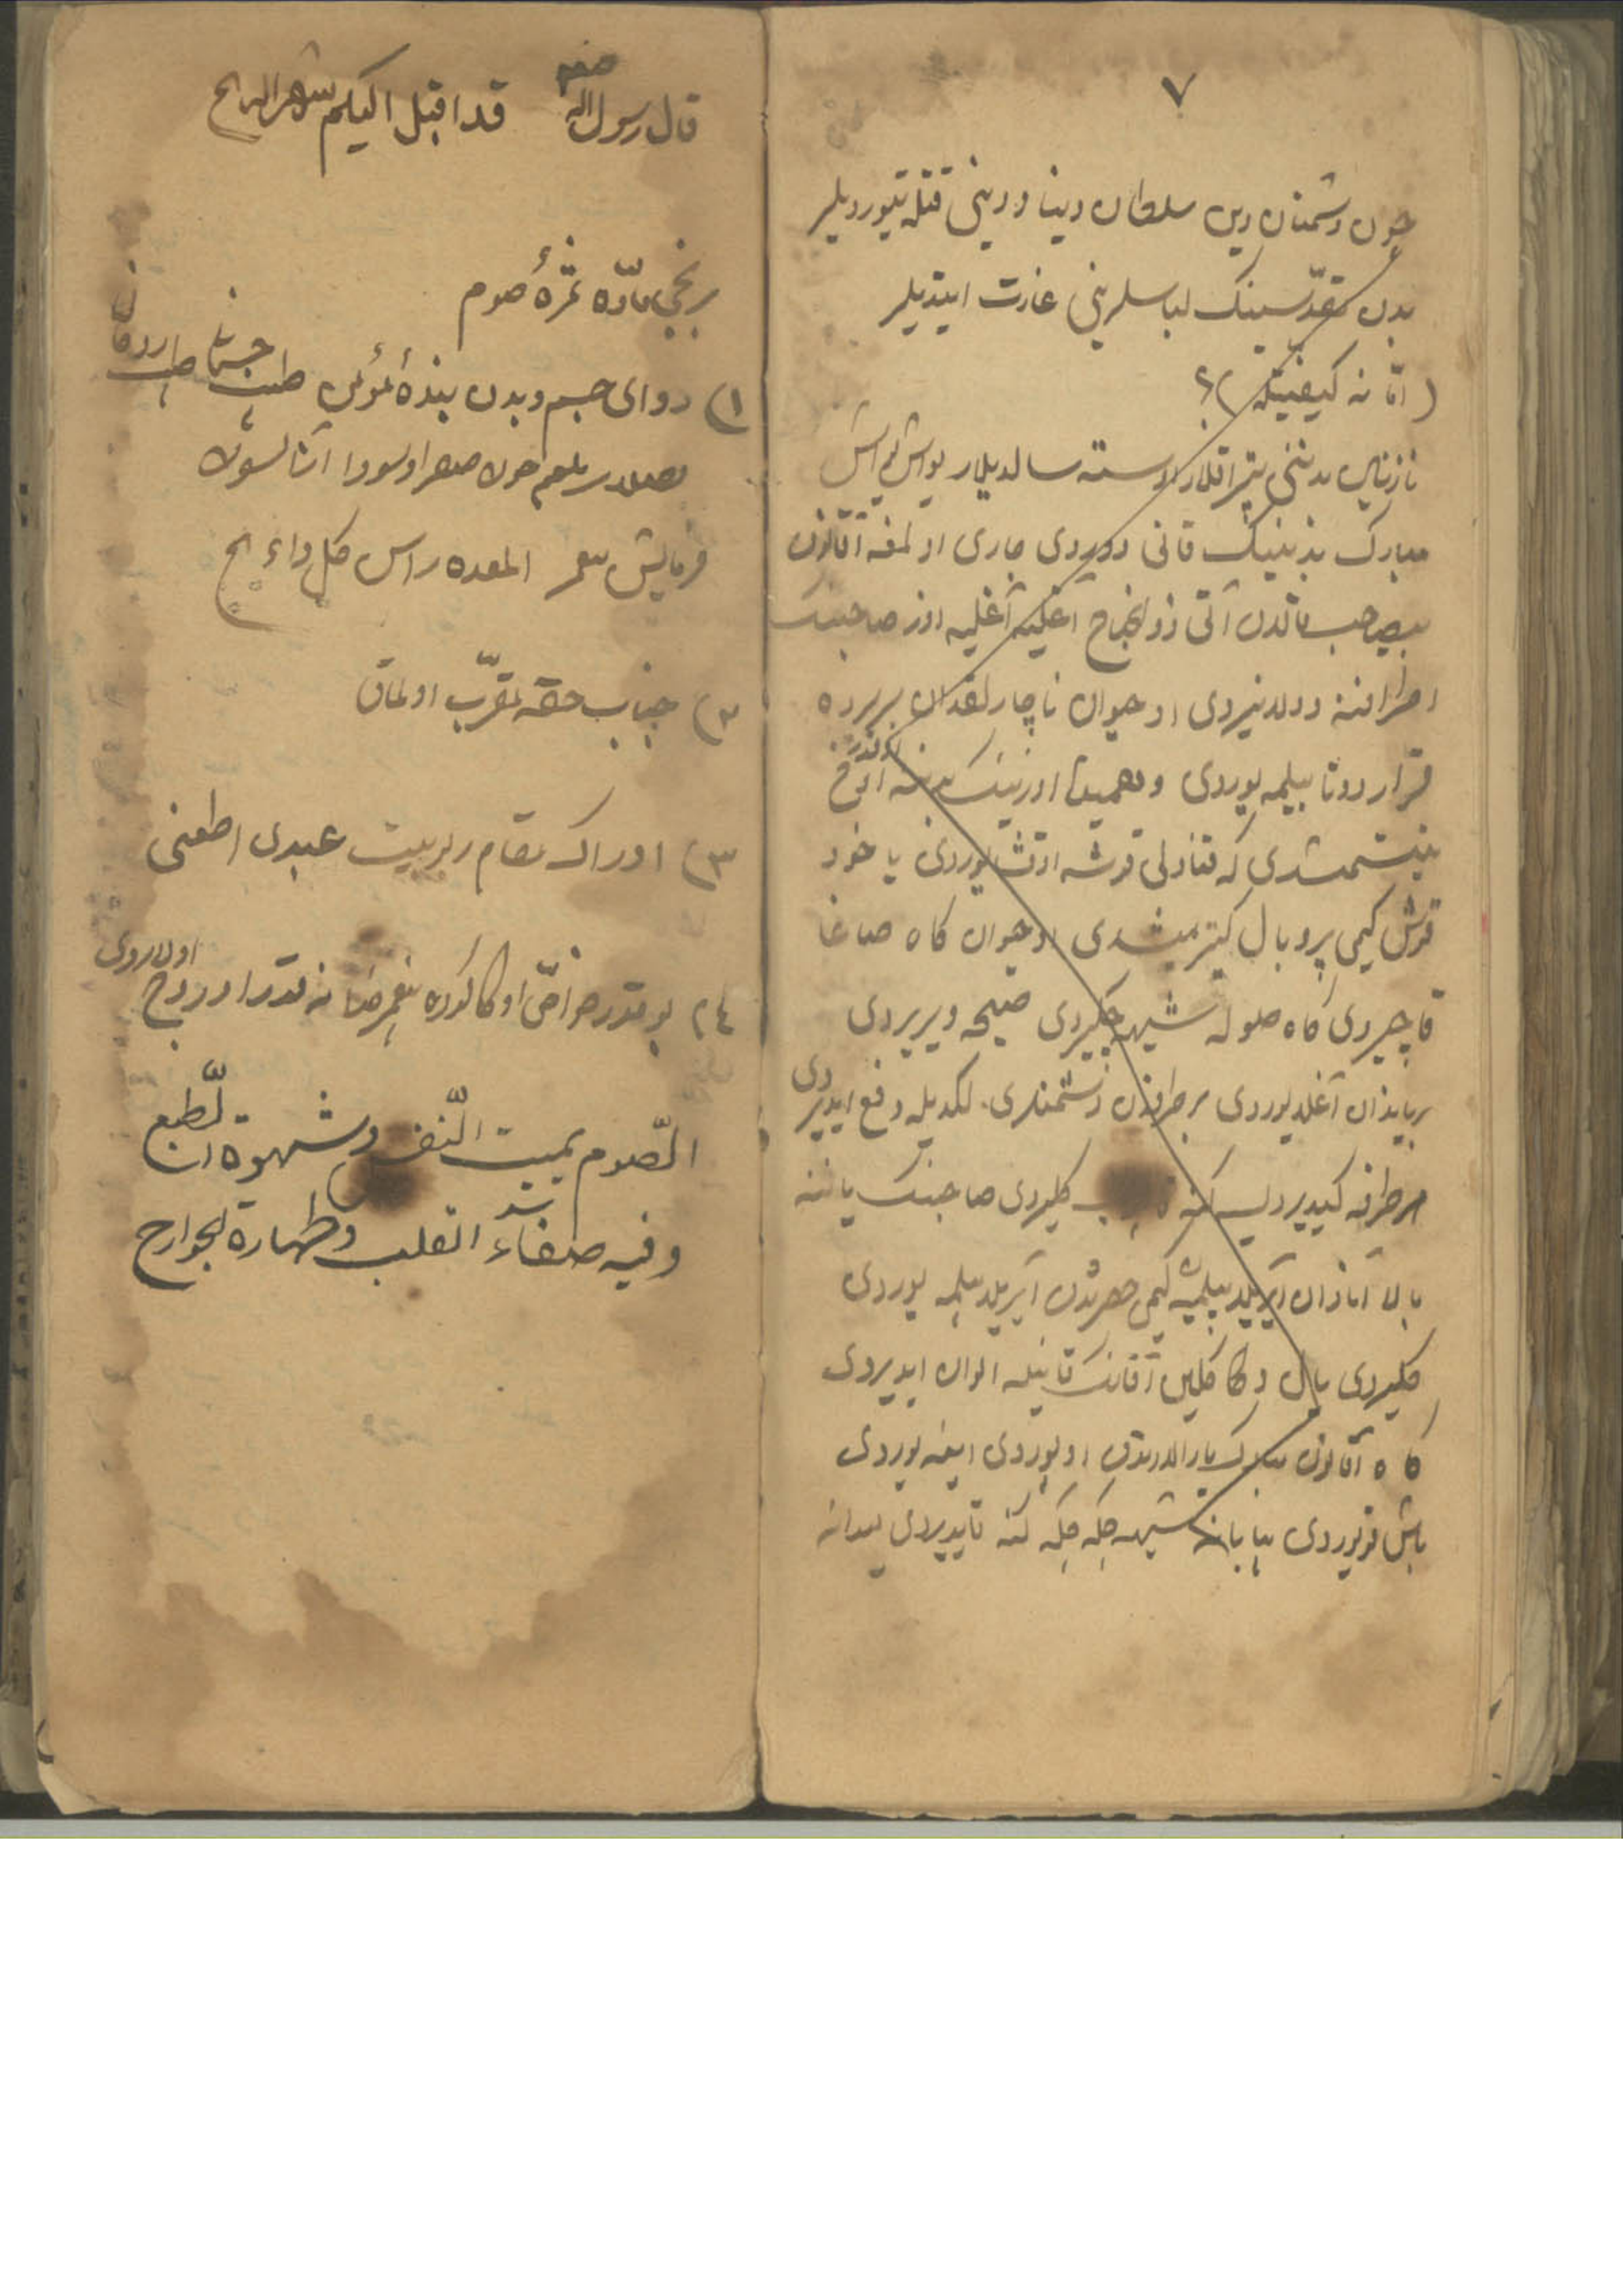 ٧
چون دشمنان دین سلطان دینا و دینی قتله تیوردیلر
بدن مقدّسینک لباسلرینی غارت ایتدیلر
( امّا نه کیفیتله )؟
نازنین بدننی تپراقلار اوسته سالدیلار یواش یواش
مبارک بدنینیک قانی دوردی جاری اولمغه آقانون
بیصاحب قالدن آتی ذوالجناح آغلیه آغلیه اوز صاحبنک
اطرافنه دولانیردی او حیوان ناچارلقدان بریرده
قرار دوتا بیلمه یوردی و همیت اوزنینک بدننه اوخ
بیتشمشدی که قنادلی قوشه اوتشایوردی یا خود
قوش کیمی پر و بال کیترمشدی او حیوان کاه صاغا
قاچیردی کاه صوله شیهه چکیردی صیحه ویریردی
بریاندان آغلایوردی برطرفدن دشمنلری لگدیله دفع ایدیردی
هر طرفه کیدیردیسه کنه کلیردی صاحبنک یاننه
بالا آنادان آیریلا بیلمیه کیمی حضرتدن آیریلا بیلمه یوردی
کلیردی یال و کاکلین آقانک قانیله الوان ایدیردی
کاه آقانون مبارک یارالارندن اوپوردی ایغنه یوردی
باش قویوردی بیابانه شیهه چکه چکه کنه قایدیردی میدانه
قال رسول الله صلعم قد اقبل الیکم شهر الله الخ
برنجی مادّه ثمرهٔ صوم
١) دوای جسم و بدن بندهٔ مؤمن طب جسمانی طب روحانی
بلغم صفرا و سودا
فرمایش المعده راس کل داء الخ
٢) جناب حقه مقرّب اولماق
٣) ادراک مقام ربوبیت عبدی اطعنی
٤) بو قدر خواصّی اوکا کوره پیغمبر خدا نه قدر اوروج اولاردی
الصّوم یمیت النّفس و شهوة الطّبع
و فیه صفاء القلب و طهارة الجوارح